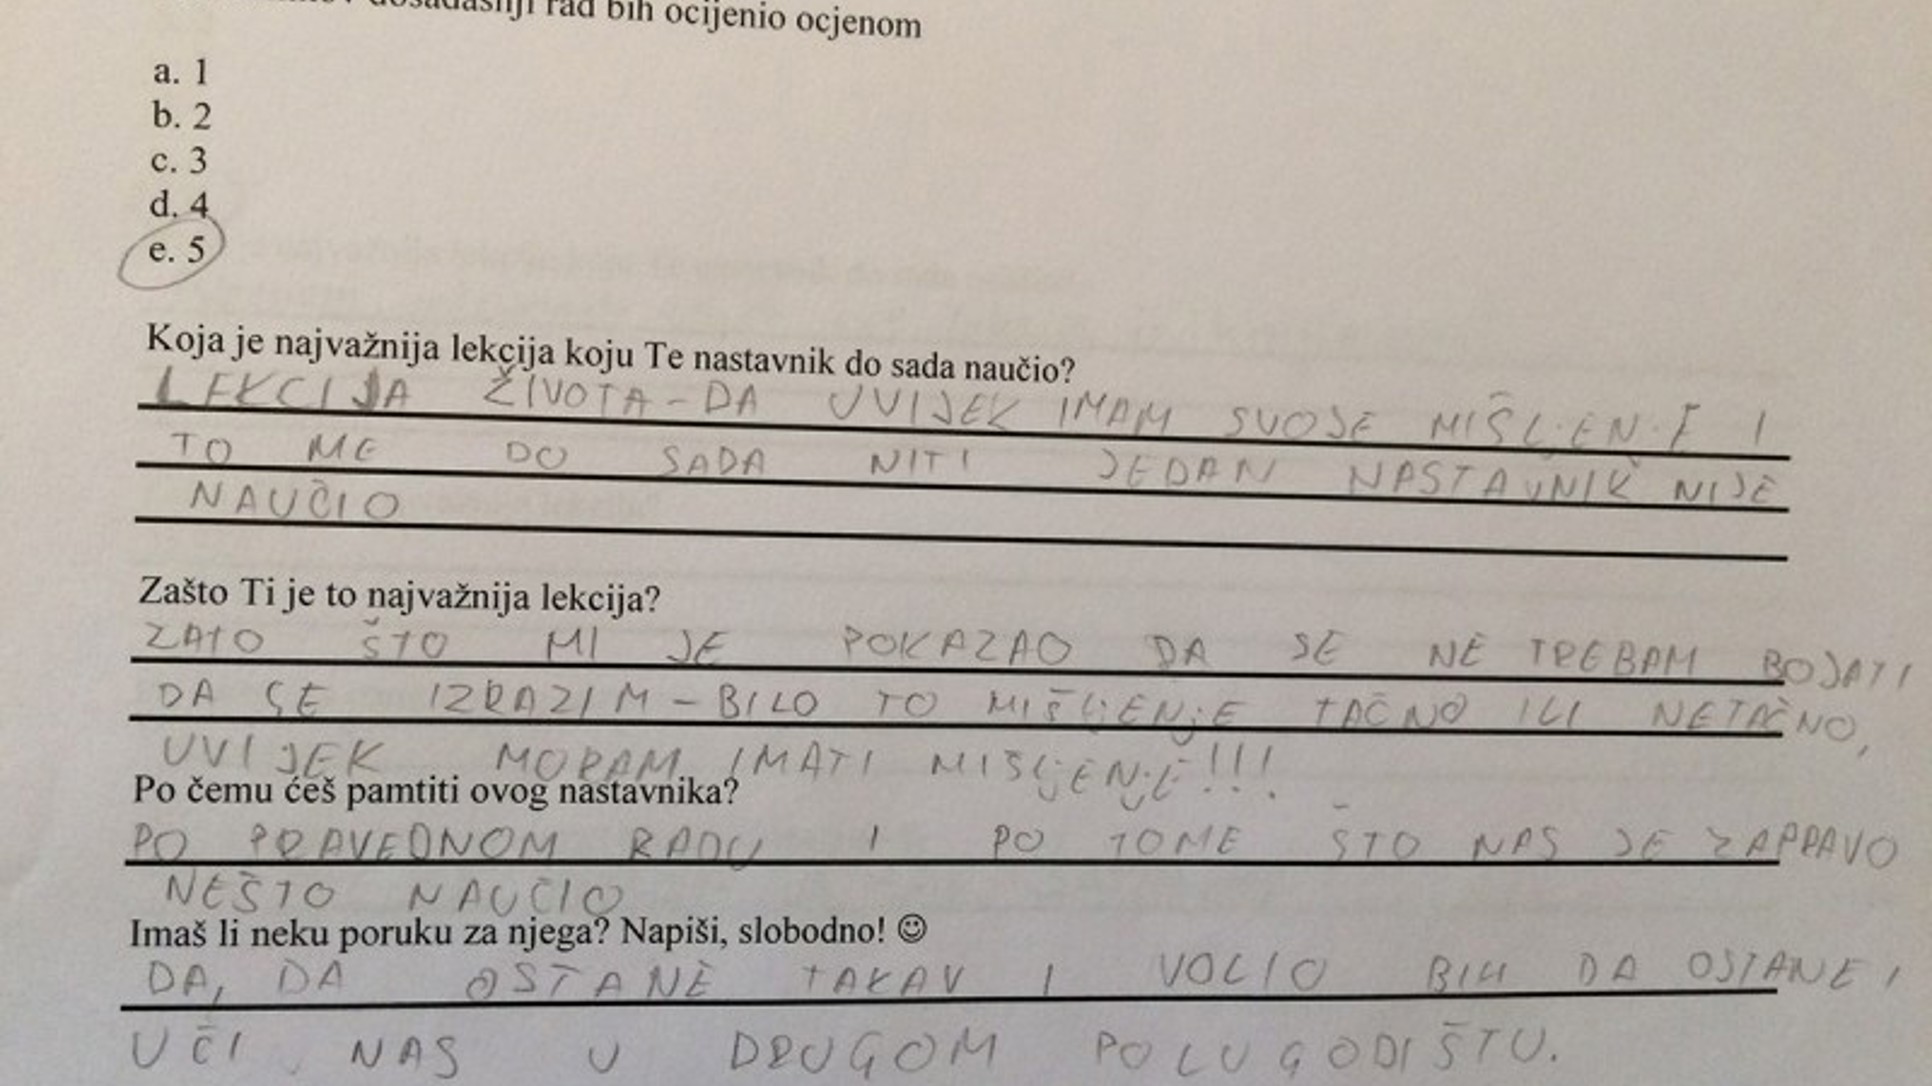 dosadašnji rad bih ocijenio ocjenom
a. 1
b. 2
c. 3
d. 4
e. 5
Koja je najvažnija lekcija koju Te nastavnik do sada naučio?
LEKCIJA ŽIVOTA - DA UVIJEK IMAM SVOJE MIŠLJENJE I
TO ME DO SADA NITI JEDAN NASTAVNIK NIJE
NAUČIO
Zašto Ti je to najvažnija lekcija?
ZATO ŠTO MI JE POKAZAO DA SE NE TREBAM BOJATI
DA SE IZRAZIM - BILO TO MIŠLJENJE TAČNO ILI NETAČNO,
UVIJEK MORAM IMATI MIŠLJENJE!!!
Po čemu ćeš pamtiti ovog nastavnika?
PO PRAVEDNOM RADU I PO TOME ŠTO NAS JE ZAPRAVO
NEŠTO NAUČIO
Imaš li neku poruku za njega? Napiši, slobodno! ☺
DA, DA OSTANE TAKAV I VOLIO BIH DA OSTANE I
UČI NAS U DRUGOM POLUGODIŠTU.